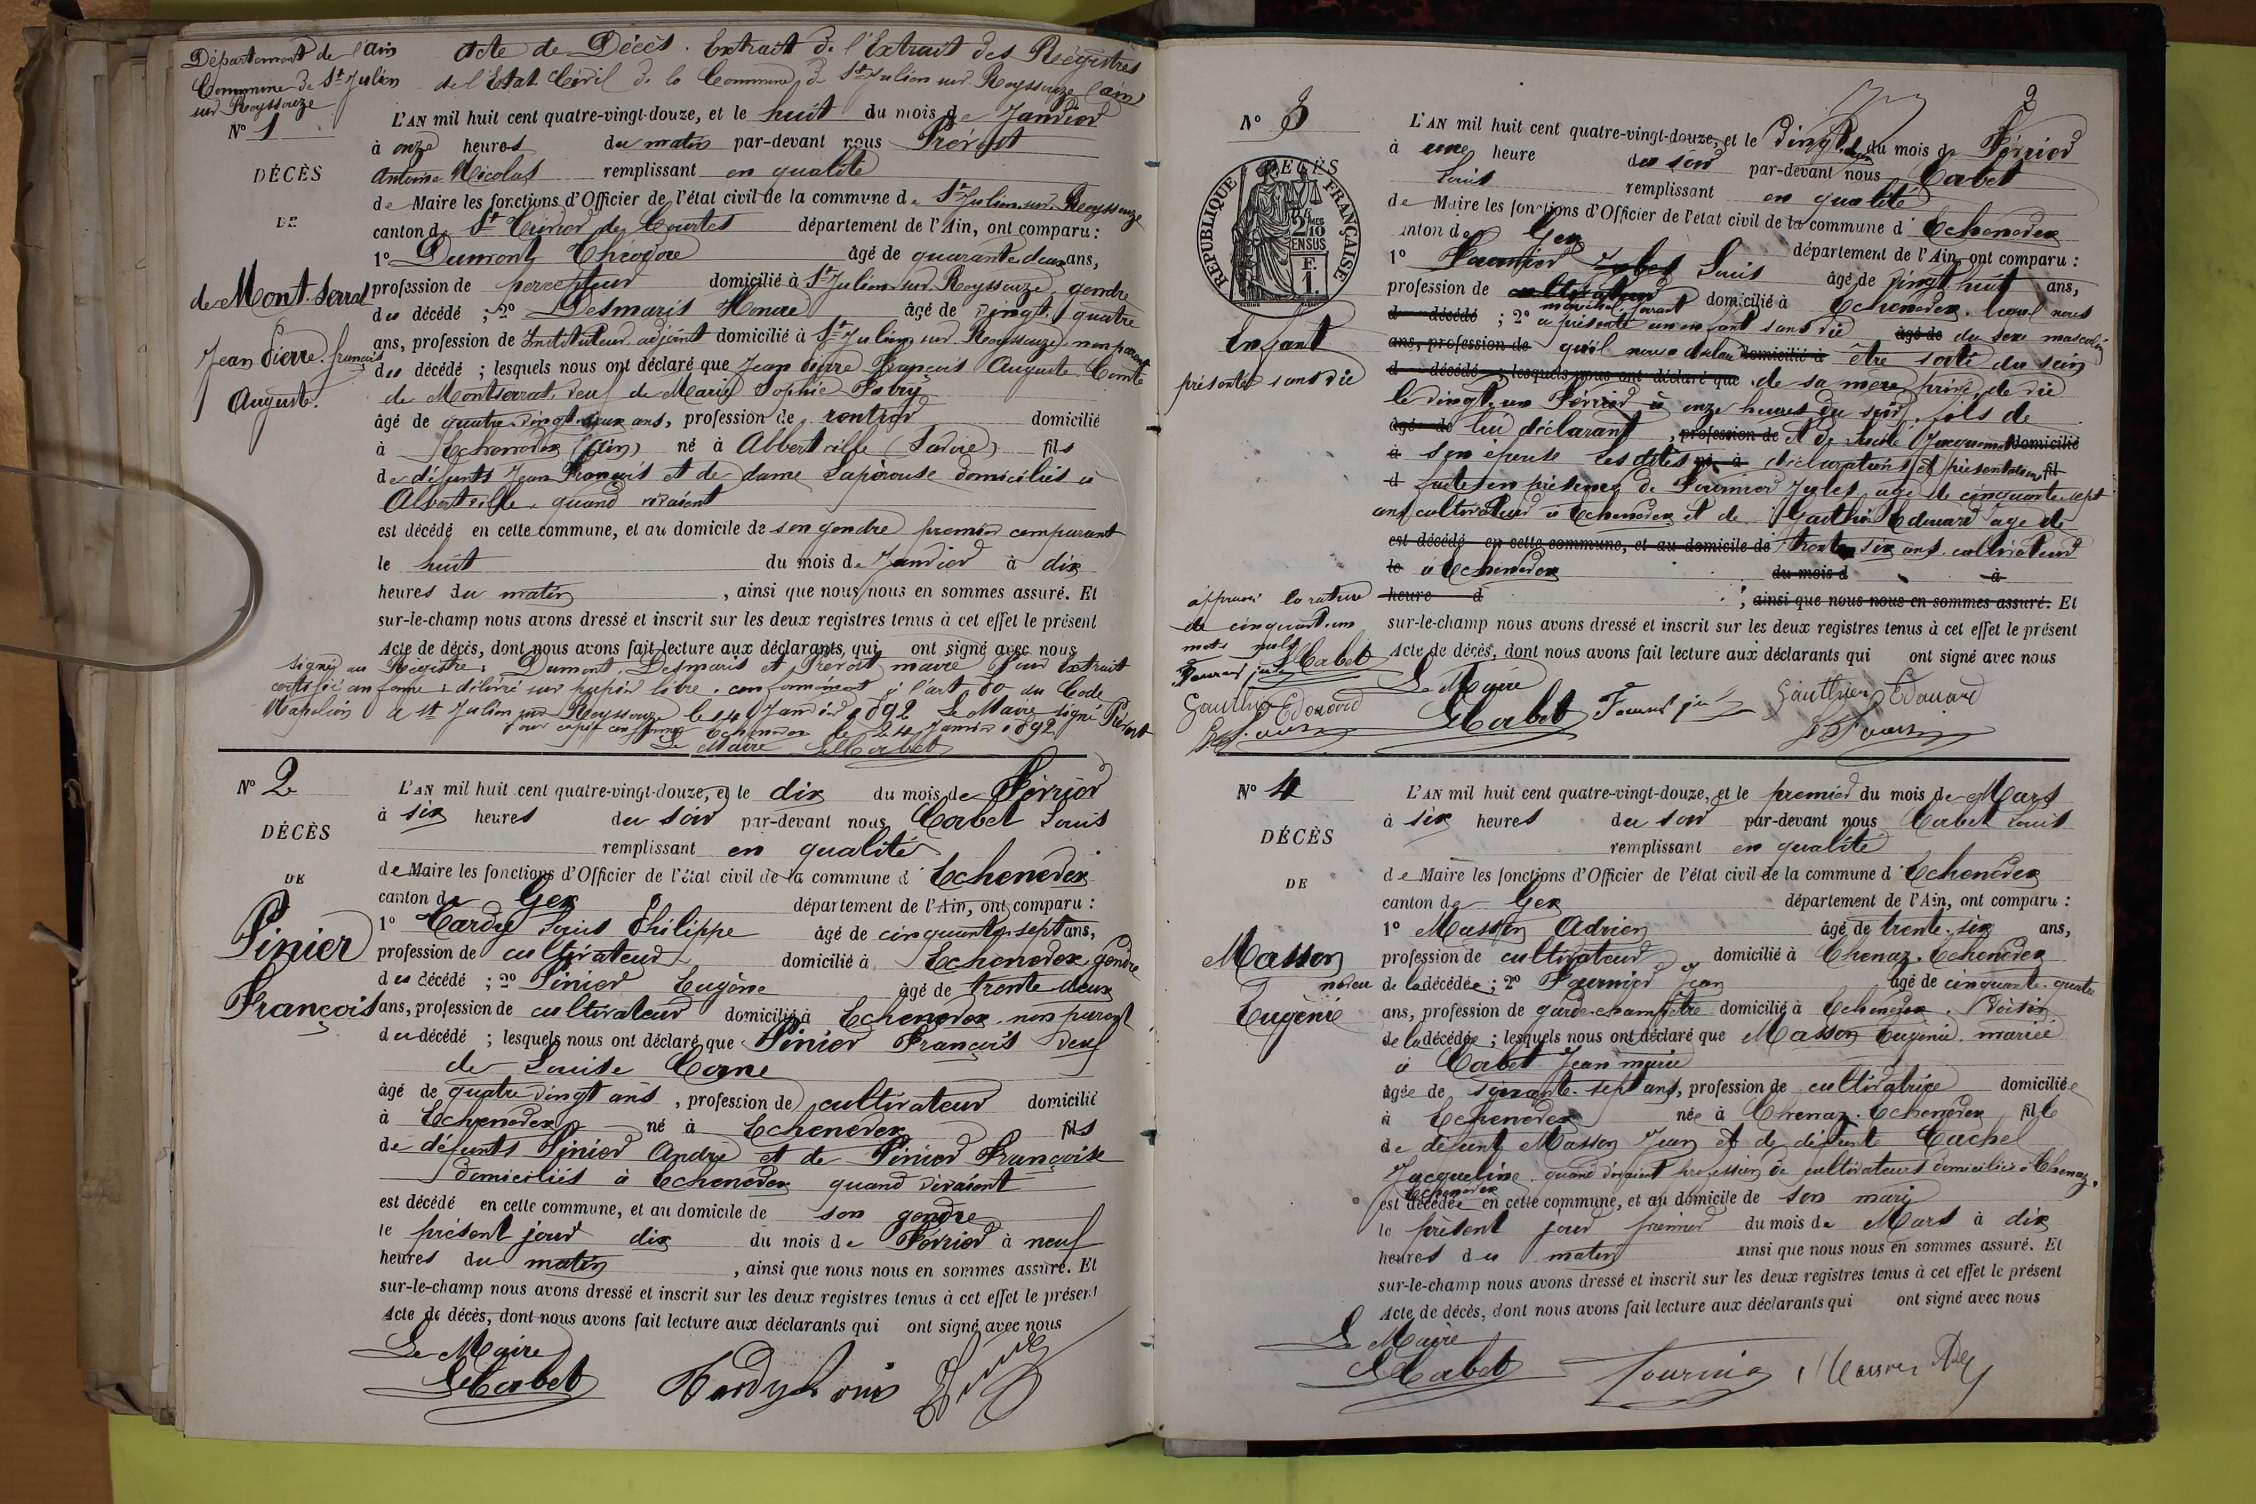 Département de l'Ain
Commune de St Julien
sur Reyssouze
Acte de Décès. Extrait de l'Extrait des Régistres
de l'Etat Civil de la Commune de St Julien sur Reyssouze (Ain)
N° 1
DÉCÈS
DE
de Mont-Serrat
Jean Pierre François
Auguste.
L'AN mil huit cent quatre-vingt-douze, et le huit du mois de Janvier
à onze heures du matin par-devant nous Prévost
Antoine Nicolas remplissant en qualité
de Maire les fonctions d'Officier de l'état civil de la commune de St Julien sur Reyssouze
canton de St Trivier de Courtes département de l'Ain, ont comparu :
1° Dumont Théodore âgé de quarante deux ans,
profession de percepteur domicilié à St Julien sur Reyssouze, gendre
du décédé ; 2° Desmaris Honoré âgé de vingt quatre
ans, profession de Instituteur adjoint domicilié à St Julien sur Reyssouze non parent
du décédé ; lesquels nous ont déclaré que Jean Pierre François Auguste Comte
de Montserrat, veuf de Marie Sophie Fabry
âgé de quatre-vingt-deux ans, profession de rentier domicilié
à Echenevex (Ain) né à Albertville (Savoie) fils
de défunts Jean François et de dame Lapérouse domiciliés à
Albertville, quand vivaient
est décédé en cette commune, et au domicile de son gendre premier comparant
le huit du mois de Janvier à dix
heures du matin , ainsi que nous nous en sommes assuré. Et
sur-le-champ nous avons dressé et inscrit sur les deux registres tenus à cet effet le présent
Acte de décès, dont nous avons fait lecture aux déclarants, qui ont signé avec nous
signé au Registre : Dumont, Desmaris et Prévost maire Pour Extrait
certifié conforme : délivré sur papier libre, conformément à l'art 80 du Code
Napoléon à St Julien sur Reyssouze le 14 Janvier 1892 Le Maire signé Prévost
Pour copie conforme Echenevex le 24 Janvier 1892
Le Maire LsCabet
N° 2
DÉCÈS
DE
Pinier
François
L'AN mil huit cent quatre-vingt-douze, et le dix du mois de Février
à six heures du soir par-devant nous Cabet Louis
remplissant en qualité
de Maire les fonctions d'Officier de l'état civil de la commune d'Echenevex
canton de Gex département de l'Ain, ont comparu :
1° Tardy Louis Philippe âgé de cinquante-sept ans,
profession de cultivateur domicilié à Echenevex, gendre
du décédé ; 2° Pinier Eugène âgé de trente deux
ans, profession de cultivateur domicilié à Echenevex non parent
du décédé ; lesquels nous ont déclaré que Pinier François veuf
de Louise Corne
âgé de quatre vingt ans , profession de cultivateur domicilié
à Echenevex né à Echenevex fils
de défunts Pinier André et de Pinier Françoise
domiciliés à Echenevex quand vivaient
est décédé en cette commune, et au domicile de son gendre
le présent jour dix du mois de Février à neuf
heures du matin , ainsi que nous nous en sommes assuré. Et
sur-le-champ nous avons dressé et inscrit sur les deux registres tenus à cet effet le présent
Acte de décès, dont nous avons fait lecture aux déclarants qui ont signé avec nous
Le Maire
LsCabet Tardy Louis
2
N° 3
DÉCÈS
RÉPUBLIQUE FRANÇAISE
2 DMES 2/10 EN SUS
F. 1.
Enfant
présenté sans vie
L'AN mil huit cent quatre-vingt-douze, et le vingt deux du mois de Février
à une heure du soir par-devant nous Cabet
Louis remplissant en qualité
de Maire les fonctions d'Officier de l'état civil de la commune d'Echenevex
canton de Gex département de l'Ain, ont comparu :
1° Fournier Jules Louis âgé de vingt huit ans,
profession de cultivateur domicilié à Echenevex, lequel nous
d décédé ; 2° a présenté un enfant sans vie âgé de du sexe masculin
ans, profession de qu'il nous a déclaré domicilié à être sorti du sein
d décédé ; lesquels nous ont déclaré que de sa mère, privé de vie
le vingt un Février à onze heures du soir, fils de
âgé de lui déclarant , profession de et de Lucie Jacquemet domicilié
à son épouse les dites né à déclarations et présentation fil
d faites en présence de Fournier Jules, âgé de cinquante sept
ans cultivateur à Echenevex et de Gauthier Edouard âgé de
est décédé en cette commune, et au domicile de trente six ans, cultivateur
le à Echenevex du mois d à
heure d , ainsi que nous nous en sommes assuré. Et
sur-le-champ nous avons dressé et inscrit sur les deux registres tenus à cet effet le présent
Acte de décès, dont nous avons fait lecture aux déclarants qui ont signé avec nous
approuvé la rature
de cinquante un
mots nuls
LsCabet
Gauthier Edouard
Le Maire
LsCabet Gauthier Edouard
N° 4
DÉCÈS
DE
Masson
Eugénie
L'AN mil huit cent quatre-vingt-douze, et le premier du mois de Mars
à six heures du soir par-devant nous Cabet Louis
remplissant en qualité
de Maire les fonctions d'Officier de l'état civil de la commune d'Echenevex
canton de Gex département de l'Ain, ont comparu :
1° Masson Adrien âgé de trente-six ans,
profession de cultivateur domicilié à Chenaz-Echenevex
neveu de la décédée ; 2° Fournier Jean âgé de cinquante-quatre
ans, profession de garde-champêtre domicilié à Echenevex, voisin
de la décédée ; lesquels nous ont déclaré que Masson Eugénie mariée
à Cabet Jean marie
âgée de soixante-sept ans, profession de cultivatrice domiciliée
à Echenevex née à Chenaz-Echenevex fille
de défunt Masson Jean et de défunte Cachel
Jacqueline quand vivaient profession de cultivateurs domiciliés à Chenaz,
Echenevex
est décédée en cette commune, et au domicile de son mary
le présent jour premier du mois de Mars à dix
heures du matin ainsi que nous nous en sommes assuré. Et
sur-le-champ nous avons dressé et inscrit sur les deux registres tenus à cet effet le présent
Acte de décès, dont nous avons fait lecture aux déclarants qui ont signé avec nous
Le Maire
LsCabet Fournier Masson